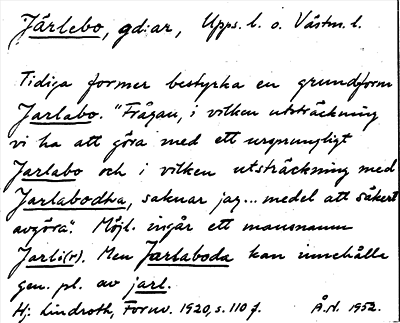 Järlebo, gd:ar, Upps. l. o. Västm. l.
Tidiga former bestyrka en grundform
Jarlabo. "Frågan, i vilken utsträckning
vi ha att göra med ett ursprungligt
Jarlabo och i vilken utsträckning med
Jarlabodha, saknar jag... medel att säkert
avgöra". Möjl. ingår ett mansnamn
Jarl(r). Men Jarlaboda kan innehålla
gen. pl. av jarl.
Hj. Lindroth, Fornv. 1920, s. 110 f. Å.N. 1952.